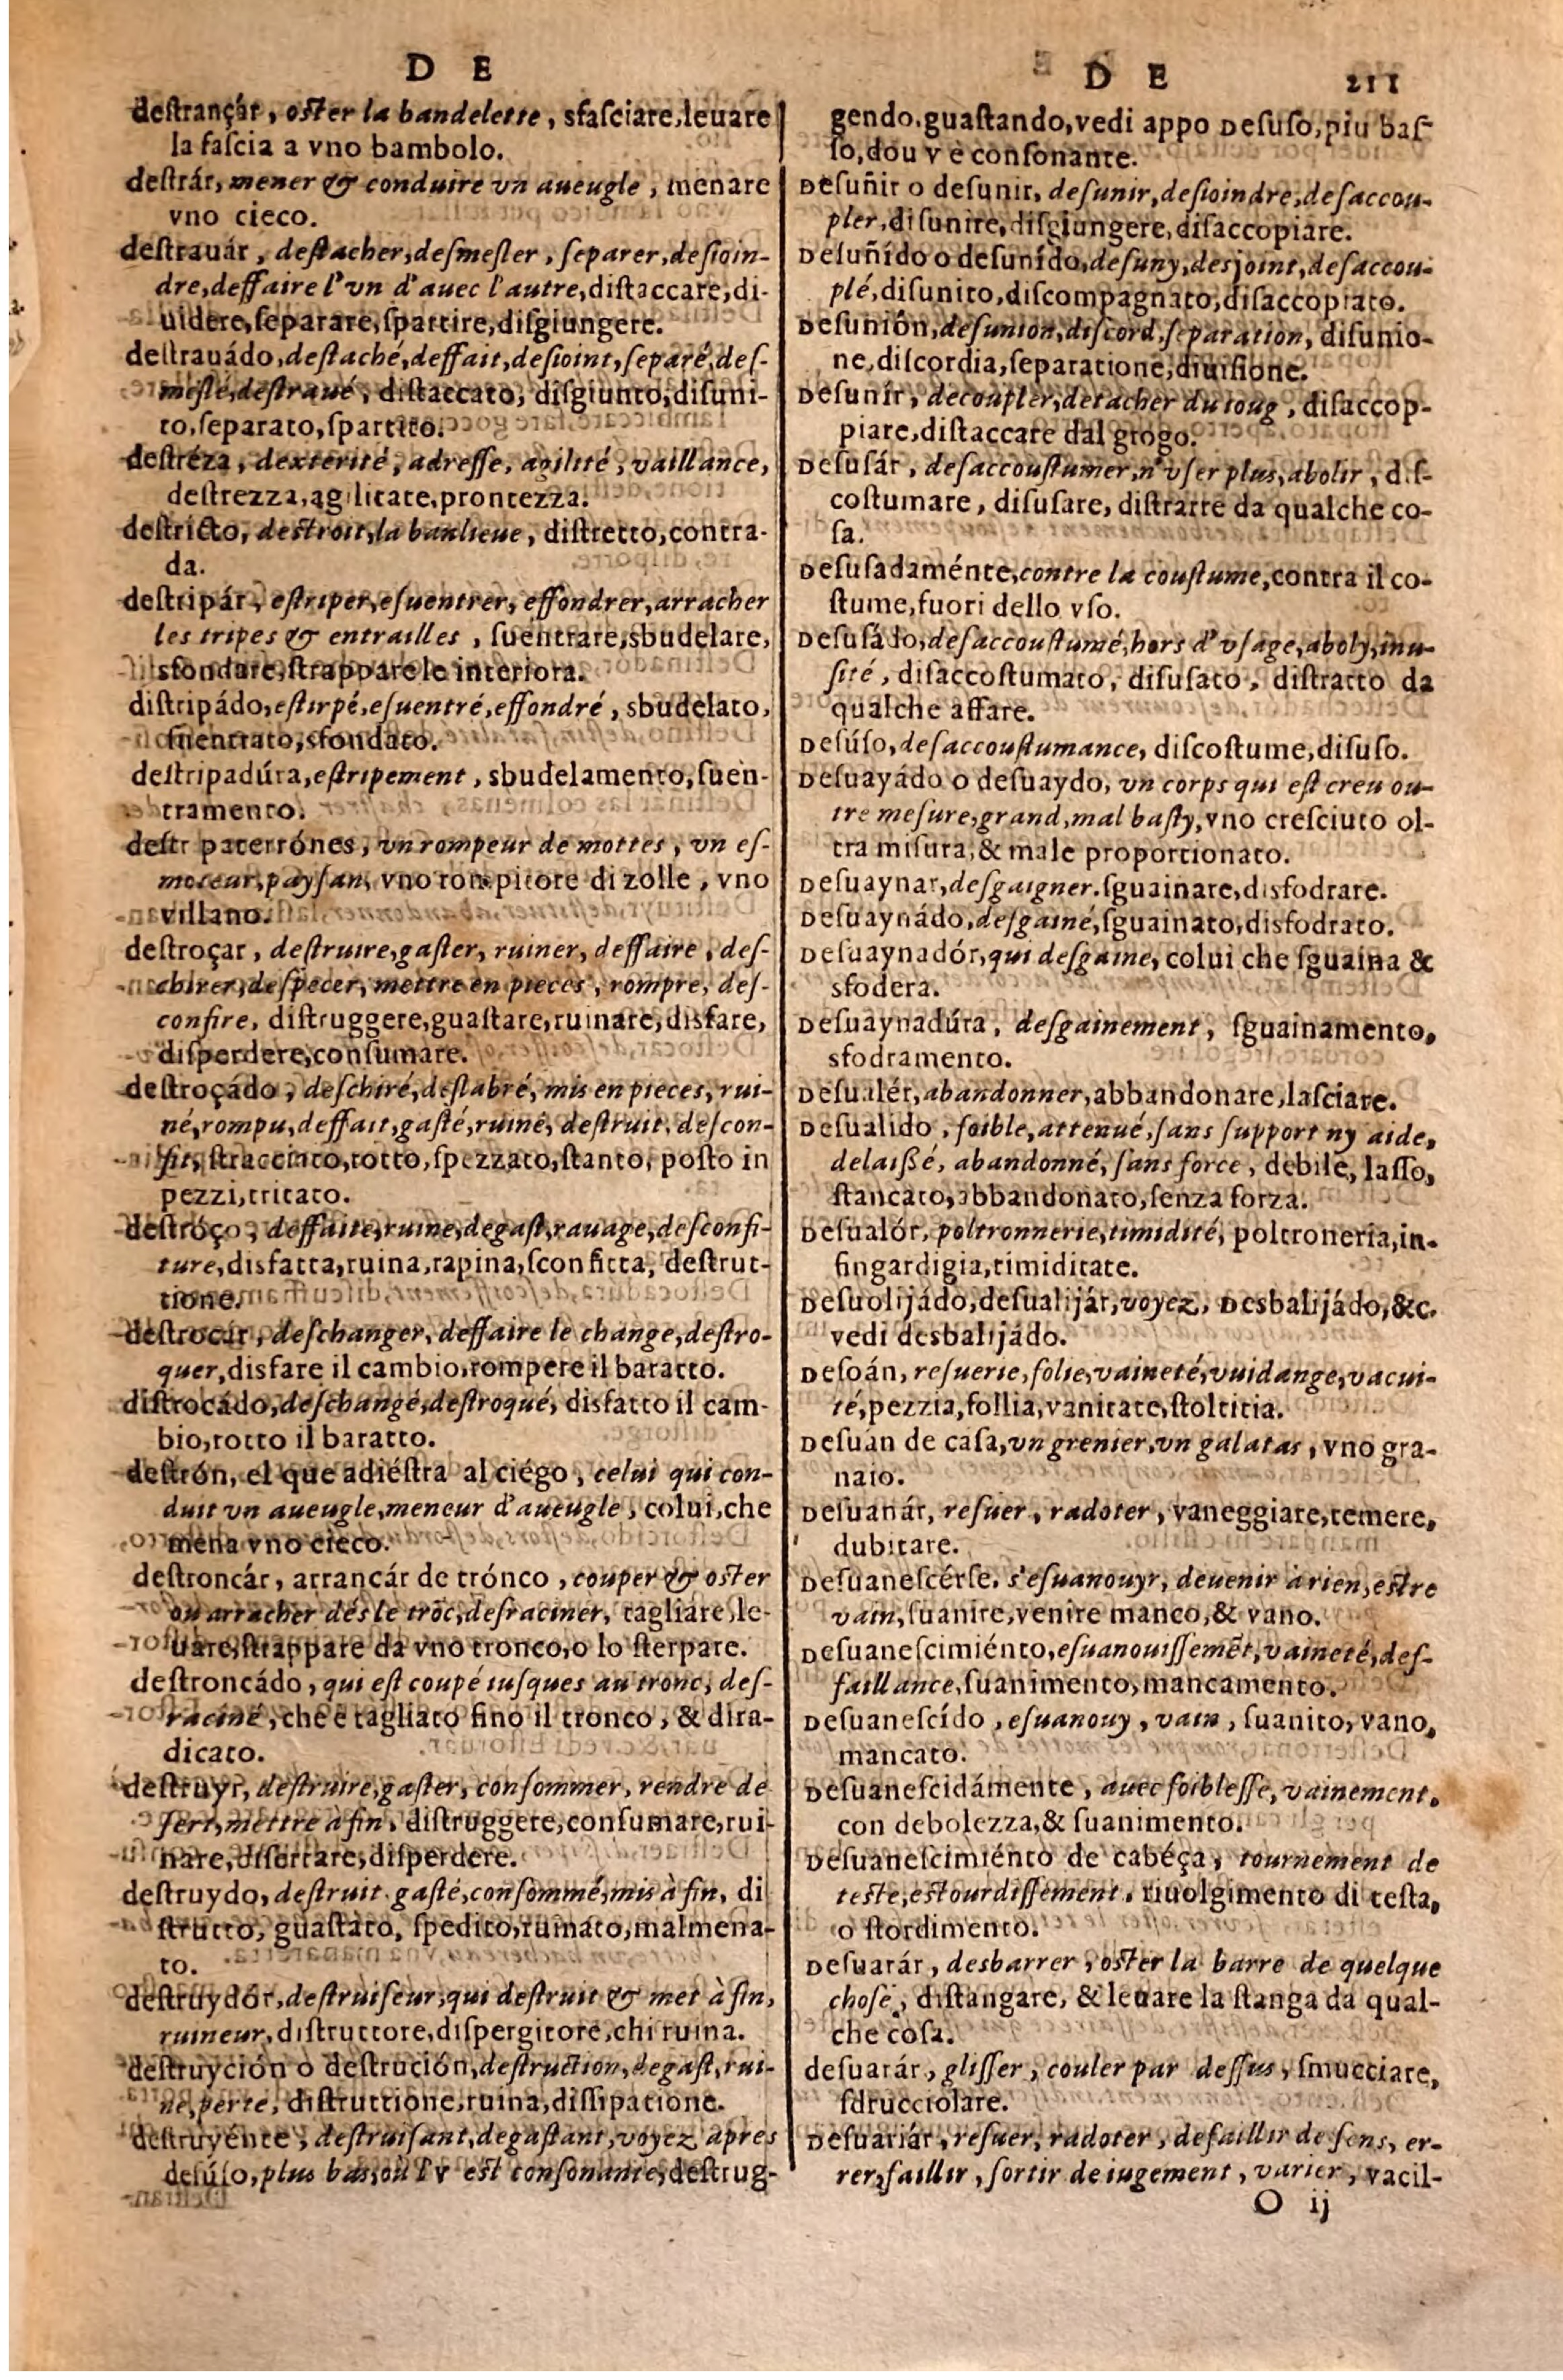 D E
destrançár, oſter la bandelette, sfaſciare, leuare
la faſcia a vno bambolo.
deſtrár, mener & conduire vn aueugle, menare
vno cieco.
deſtrauár, deſtacher, deſmeſler, ſeparer, deſioin-
dre, deffaire l'vn d'auec l'autre, diſtaccare, di-
uidere, ſeparare, ſpartire, diſgiungere.
deſtrauádo, deſtaché, deffait, deſioint, ſeparé, deſ-
meſlé, deſtraué, diſtaccato, diſgiunto, diſuni-
to, ſeparato, ſpartito.
deſtréza, dexterité, adreſſe, agilité, vaillance,
deſtrezza, agilitate, prontezza.
deſtricto, deſtroit, la banlieue, diſtretto, contra-
da.
deſtripár, eſtriper, eſuentrer, effondrer, arracher
les tripes & entrailles, ſuentrare, sbudelare,
sfondare, ſtrappare le interiora.
diſtripádo, eſtirpé, eſuentré, effondré, sbudelato,
ſuentrato, sfondato.
deſtripadúra, eſtripement, sbudelamento, ſuen-
tramento.
deſtr paterrónes, vn rompeur de mottes, vn eſ-
moteur, payſan, vno rompitore di zolle, vno
villano.
deſtroçar, deſtruire, gaſter, ruiner, deffaire, deſ-
chirer, deſpecer, mettre en pieces, rompre, deſ-
confire, diſtruggere, guaſtare, ruinare, disfare,
diſperdere, conſumare.
deſtroçádo, deſchiré, deſlabré, mis en pieces, rui-
né, rompu, deffait, gaſté, ruiné, deſtruit, deſcon-
fit, ſtracciato, rotto, ſpezzato, ſtanto, poſto in
pezzi, tritato.
deſtróço, deffaite, ruine, degaſt, rauage, deſconfi-
ture, disfatta, ruina, rapina, ſconfitta, deſtrut-
tione.
deſtrocár, deſchanger, deffaire le change, deſtro-
quer, disfare il cambio, rompere il baratto.
diſtrocádo, deſchangé, deſtroqué, disfatto il cam-
bio, rotto il baratto.
deſtrón, el que adiéſtra al ciégo, celui qui con-
duit vn aueugle, meneur d'aueugle, colui, che
mena vno cieco.
deſtroncár, arrancár de trónco, couper & oſter
ou arracher dés le trõc, deſraciner, tagliare, le-
uare, ſtrappare da vno tronco, o lo ſterpare.
deſtroncádo, qui eſt coupé iuſques au tronc, deſ-
raciné, che è tagliato fino il tronco, & dira-
dicato.
deſtruyr, deſtruire, gaſter, conſommer, rendre de
ſert, mettre à fin, diſtruggere, conſumare, rui-
nare, diſertare, diſperdere.
deſtruydo, deſtruit, gaſté, conſommé, mis à fin, di
ſtrutto, guaſtato, ſpedito, ruinato, malmena-
to.
deſtruydór, deſtruiſeur, qui deſtruit & met à fin,
ruineur, diſtruttore, diſpergitore, chi ruina.
deſtruyción o deſtrución, deſtruction, degaſt, rui-
ne, perte, diſtruttione, ruina, diſſipatione.
deſtruyénte, deſtruiſant, degaſtant, voyez apres
deſúſo, plus bas, où l'v eſt conſonante, deſtrug-
D E 211
gendo, guaſtando, vedi appo Deſuſo, piu baſ-
ſo, dou v è conſonante.
Deſuñir o deſunir, deſunir, deſioindre, deſaccou-
pler, diſunire, diſgiungere, diſaccopiare.
Deſuñído o deſunído, deſuny, desjoint, deſaccou-
plé, diſunito, diſcompagnato, diſaccopiato.
Deſunión, deſunion, diſcord, ſeparation, diſunio-
ne, diſcordia, ſeparatione, diuiſione.
Deſunír, decoupler, detacher du ioug, diſaccop-
piare, diſtaccare dal giogo.
Deſuſár, deſaccouſtumer, n'vſer plus, abolir, diſ-
coſtumare, diſuſare, diſtrarre da qualche co-
ſa.
Deſuſadaménte, contre la couſtume, contra il co-
ſtume, fuori dello vſo.
Deſuſádo, deſaccouſtumé, hors d'vſage, aboly, inu-
ſité, diſaccoſtumato, diſuſato, diſtratto da
qualche affare.
Deſúſo, deſaccouſtumance, diſcoſtume, diſuſo.
Deſuayádo o deſuaydo, vn corps qui eſt creu ou-
tre meſure, grand, mal baſty, vno creſciuto ol-
tra miſura, & male proportionato.
Deſuaynar, deſgaigner, ſguainare, disfodrare.
Deſuaynádo, deſgainé, ſguainato, disfodrato.
Deſuaynadór, qui deſgaine, colui che ſguaina &
sfodera.
Deſuaynadúra, deſgainement, ſguainamento,
sfodramento.
Deſualér, abandonner, abbandonare, laſciare.
Deſualido, foible, attenué, ſans ſupport ny aide,
delaißé, abandonné, ſans force, debile, laſſo,
ſtancato, abbandonato, ſenza forza.
Deſualór, poltronnerie, timidité, poltroneria, in-
fingardigia, timiditate.
Deſuolijádo, deſualijár, voyez, Desbalijádo, &c.
vedi desbalijádo.
Deſoán, reſuerie, folie, vaineté, vuidange, vacui-
té, pezzia, follia, vanitate, ſtoltitia.
Deſuan de caſa, vn grenier, vn galatas, vno gra-
naio.
Deſuanár, reſuer, radoter, vaneggiare, temere,
dubitare.
Deſuaneſcérſe, s'eſuanouyr, deuenir à rien, eſtre
vain, ſuanire, venire manco, & vano.
Deſuaneſcimiénto, eſuanouiſſemẽt, vaineté, deſ-
faillance, ſuanimento, mancamento.
Deſuaneſcído, eſuanouy, vain, ſuanito, vano,
mancato.
Deſuaneſcidámente, auec foibleſſe, vainement,
con debolezza, & ſuanimento.
Deſuaneſcimiénto de cabéça, tournement de
teſte, eſtourdiſſement, riuolgimento di teſta,
o ſtordimento.
Deſuarár, desbarrer, oſter la barre de quelque
choſe, diſtangare, & leuare la ſtanga da qual-
che coſa.
deſuarár, gliſſer, couler par deſſus, ſmucciare,
ſdrucciolare.
Deſuariár, reſuer, radoter, defaillir de ſens, er-
rer, faillir, ſortir de iugement, varier, vacil-
O ij